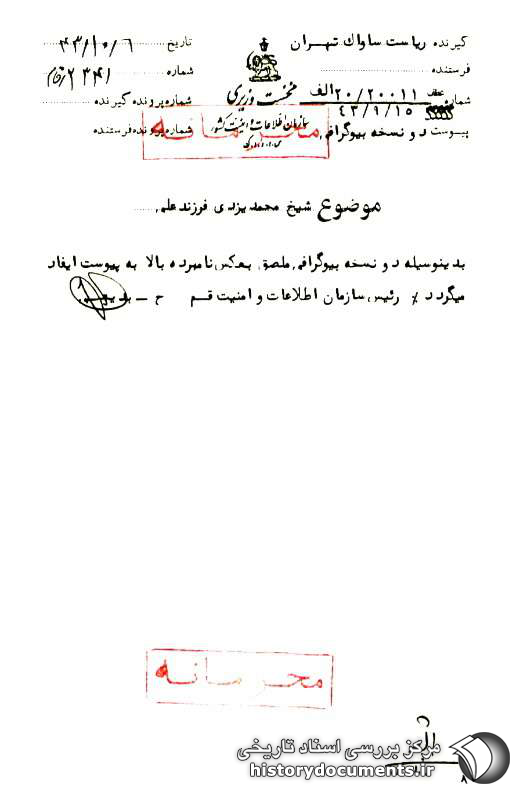 گیرنده ریاست ساواک تهران
فرستنده
شماره عطف ۲۰/۲۰۰۱۱ الف
۴۳/۹/۱۵
پیوست دو نسخه بیوگرافی
نخست وزیری
سازمان اطلاعات و امنیت کشور
تاریخ ۴۳/۱۰/۶
شماره ۲۳۴۱
شماره پرونده گیرنده
شماره پرونده فرستنده
محرمانه
موضوع شیخ محمد یزدی فرزند علی
بدینوسیله دو نسخه بیوگرافی ملصق بعکس نامبرده بالا به پیوست ایفاد
میگردد٪ رئیس سازمان اطلاعات و امنیت قم ح – بدیعی
محرمانه
مرکز بررسی اسناد تاریخی
historydocuments.ir